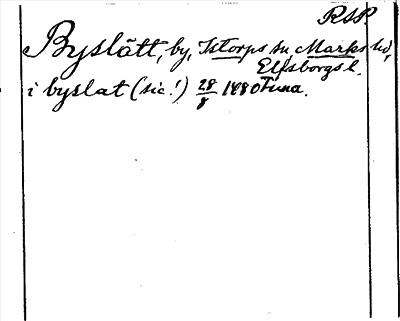 RSP
Byslätt, by, Istorps sn, Marks hd,
Elfsborgs l.
i byslat (sic!) 28/8 1480 Tuna.